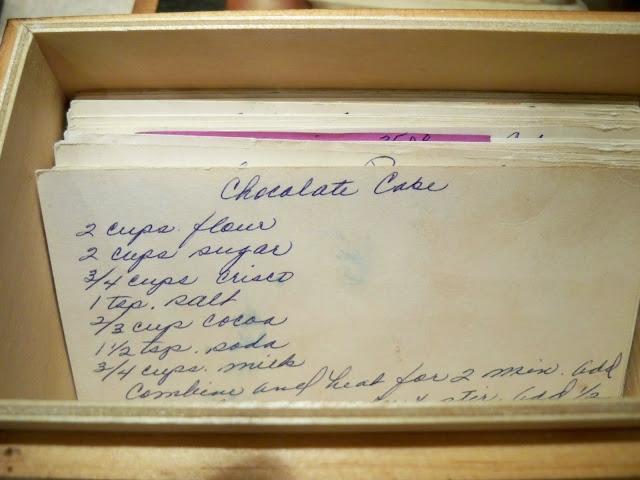 Chocolate Cake
2 cups flour
2 cups sugar
3/4 cups crisco
1 tsp. salt
2/3 cup cocoa
1 1/2 tsp. soda
3/4 cups milk
Combine and heat for 2 min. add
stir. Add 1/2